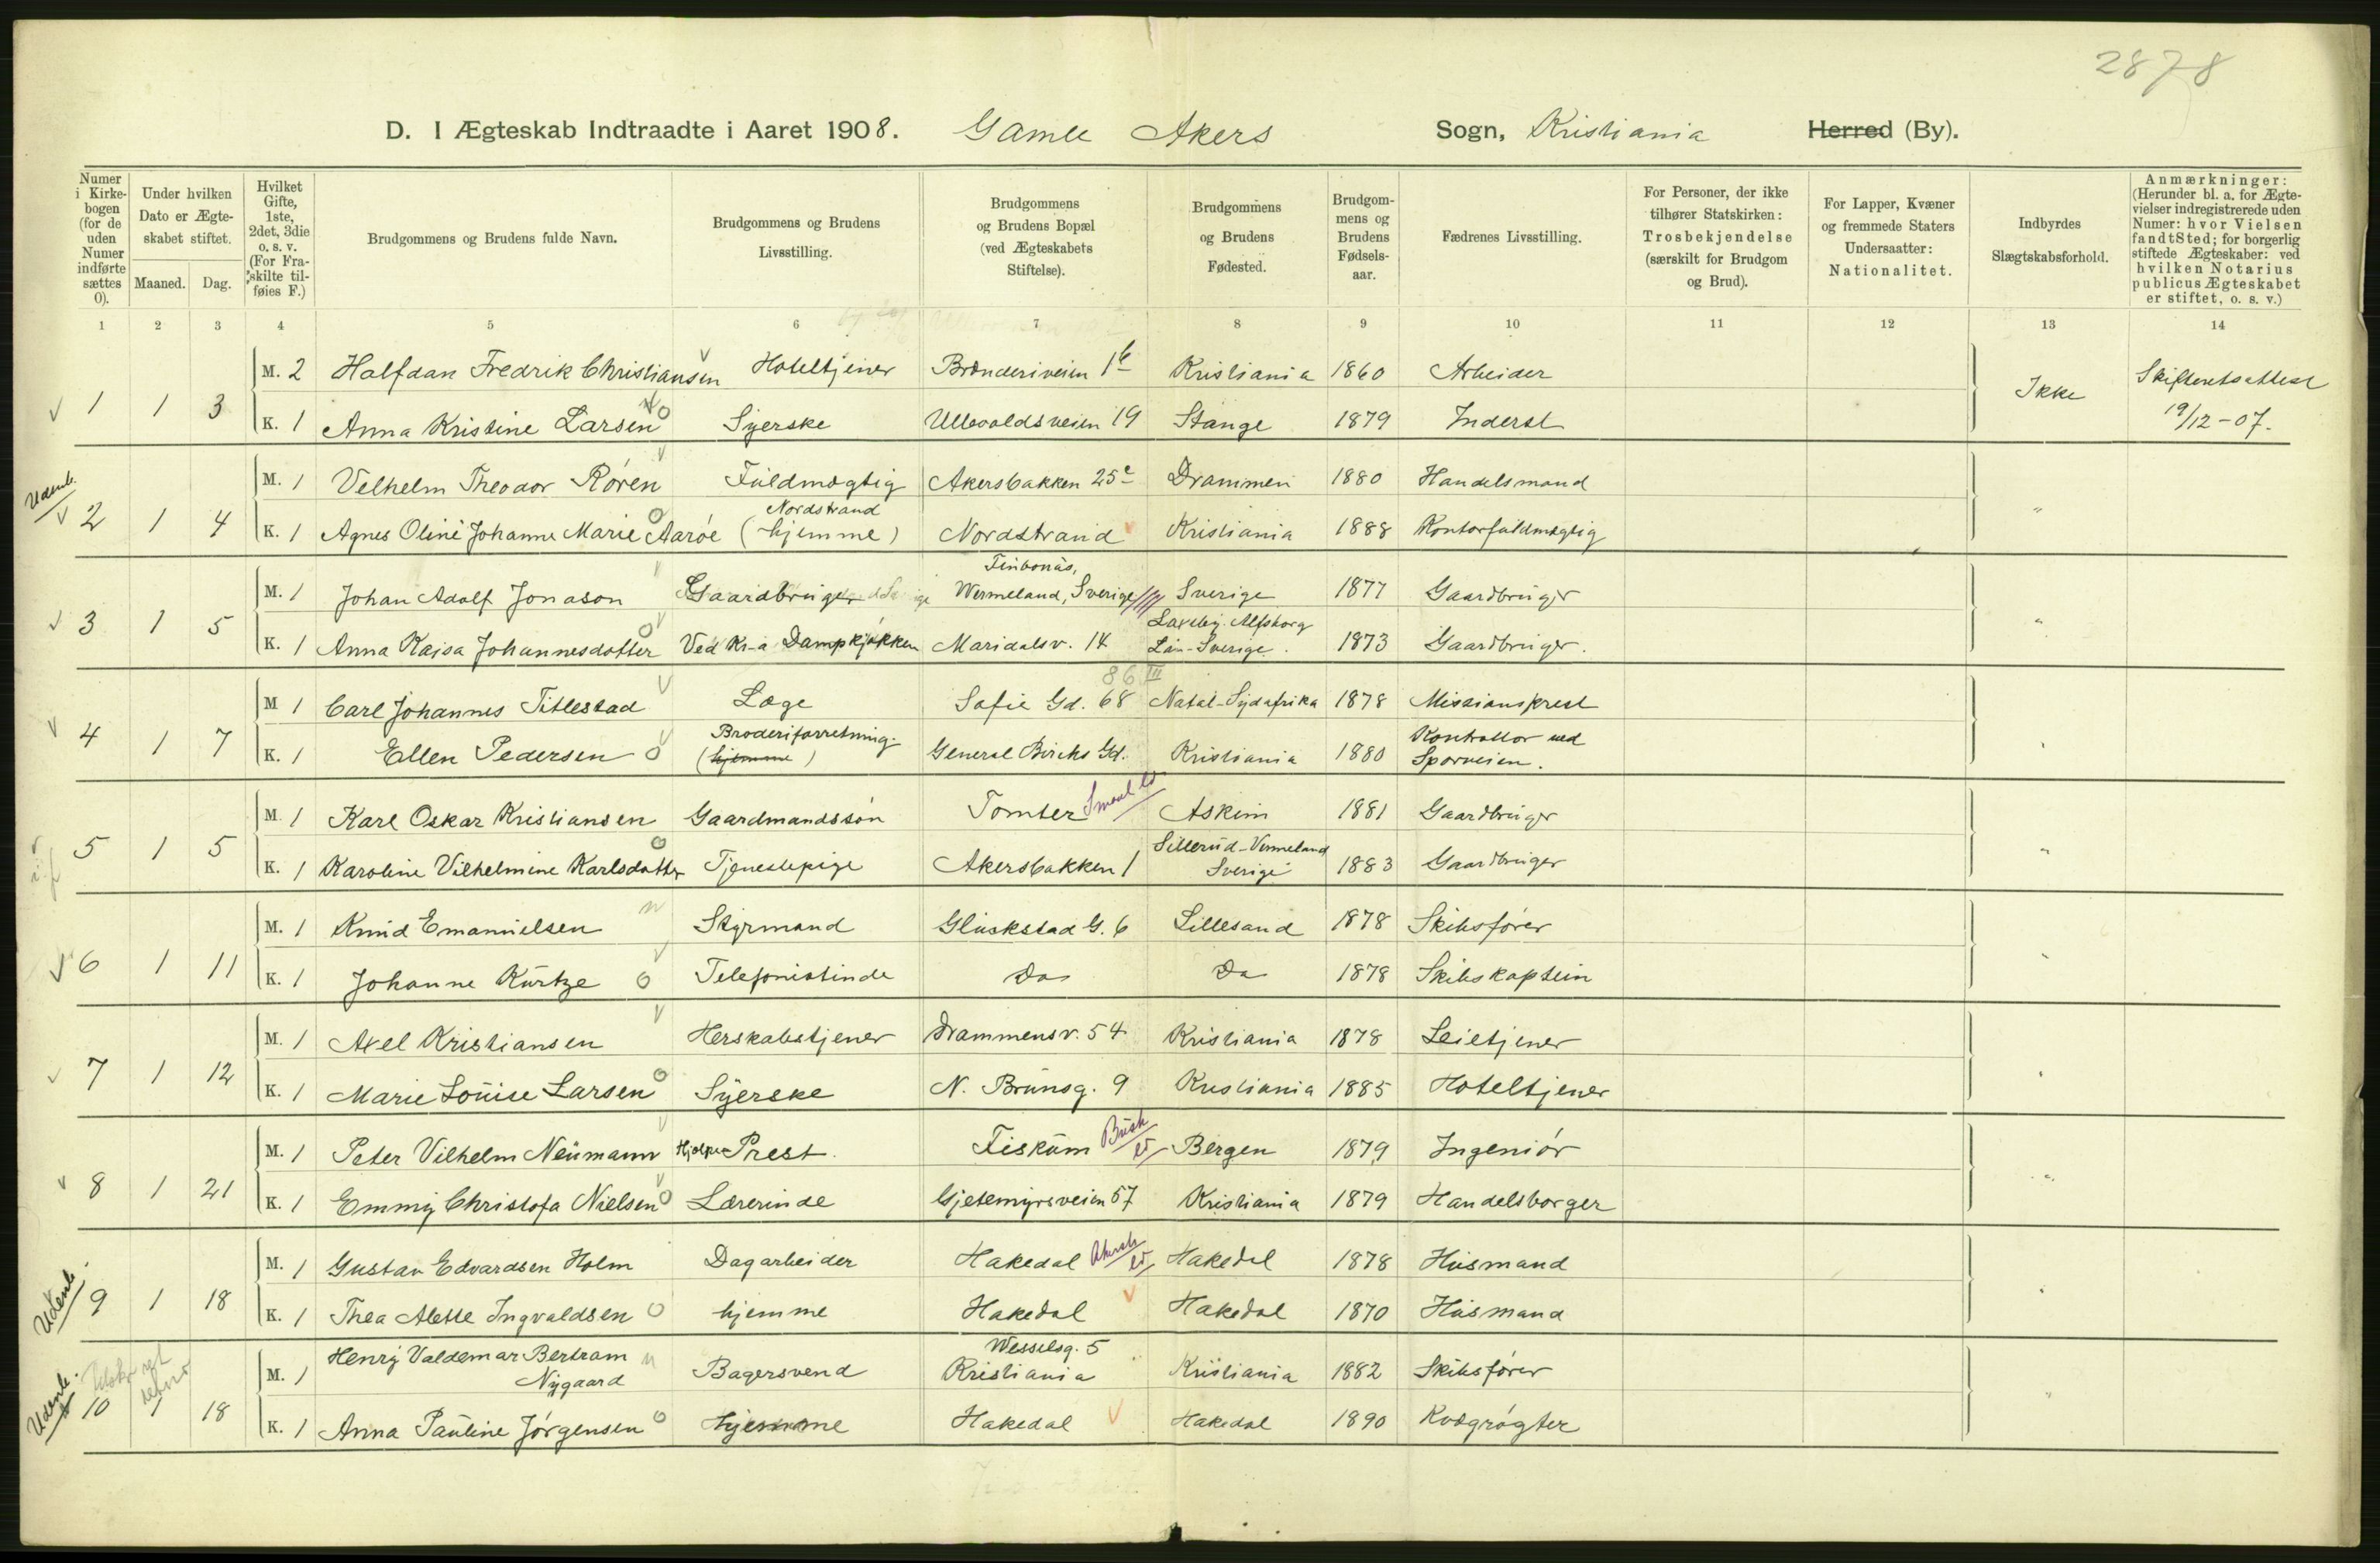 2878
D. I Ægteskab Indtraadte i Aaret 1908. Gamle Akers Sogn, Kristiania Herred (By).
Numer i Kirkebogen (for de uden Numer indførte sættes 0).
Under hvilken Dato er Ægteskabet stiftet.
Maaned. Dag.
Hvilket Gifte, 1ste, 2det, 3die o. s. v. (For Fraskilte tilføies F.)
Brudgommens og Brudens fulde Navn.
Brudgommens og Brudens Livsstilling.
Brudgommens og Brudens Bopæl (ved Ægteskabets Stiftelse).
Brudgommens og Brudens Fødested.
Brudgommens og Brudens Fødselsaar.
Fædrenes Livsstilling.
For Personer, der ikke tilhører Statskirken: Trosbekjendelse (særskilt for Brudgom og Brud).
For Lapper, Kvæner og fremmede Staters Undersaatter: Nationalitet.
Indbyrdes Slægtskabsforhold.
Anmærkninger: (Herunder bl. a. for Ægtevielser indregistrerede uden Numer: hvor Vielsen fandt Sted; for borgerlig stiftede Ægteskaber: ved hvilken Notarius publicus Ægteskabet er stiftet, o. s. v.)
1 2 3 4 5 6 7 8 9 10 11 12 13 14
M. 2 Halfdan Fredrik Christiansen Hoteltjener Brænderiveien 1b Kristiania 1860 Arbeider
1 1 3 Ikke Skifteretsattest 19/12-07.
K. 1 Anna Kristine Larsen Syerske Ullevoldsveien 19 Stange 1879 Inderst
Udenb.
M. 1 Velhelm Theodor Røren Fuldmægtig Akersbakken 25c Drammen 1880 Handelsmand
2 1 4 "
Nordstrand
K. 1 Agnes Oline Johanne Marie Aarøe (hjemme) Nordstrand Kristiania 1888 Kontorfuldmægtig
Finbonäs,
M. 1 Johan Adolf Jonason Gaardbruger Wermeland, Sverige Sverige 1877 Gaardbruger
3 1 5 "
Laxeby. Alfsborg
K. 1 Anna Kaisa Johannesdotter Ved Kr-a Dampkjøkken Maridalsv. 14 Län-Sverige. 1873 Gaardbruger.
86 III
M 1 Carl Johannes Titlestad Læge Sofie Gd. 68 Natal-Sydafrika 1878 Missionsprest
4 1 7 "
Broderiforretning. Kontrollør ved
K. 1 Ellen Pedersen (hjemme) General Birchs Gd. Kristiania 1880 Sporveien.
M. 1 Karl Oskar Kristiansen Gaardmandssøn Tomter Smaal Askim 1881 Gaardbruger
5 1 5 "
Sillerud-Vermeland
K. 1 Karoline Vilhelmine Karlsdatter Tjenestepige Akersbakken 1 Sverige 1883 Gaardbruger
M. 1 Knud Emanuelsen Styrmand Glückstad G. 6 Lillesand 1878 Skibsfører
6 1 11 "
K. 1 Johanne Kürtze Telefonistinde Do Do 1878 Skibskaptein
M. 1 Axel Kristiansen Herskabstjener Drammensv. 54 Kristiania 1878 Leietjener
7 1 12 "
K. 1 Marie Louise Larsen Syerske N. Brunsg. 9 Kristiania 1885 Hoteltjener
M. 1 Peter Vilhelm Neumann Hjælpe Prest. Fiskum Busk Bergen 1879 Ingeniør
8 1 21 "
K. 1 Emmy Christofa Nielsen Lærerinde Gjetemyrsveien 57 Kristiania 1879 Handelsborger
Udenb.
M. 1 Gustav Edvardsen Holm Dagarbeider Hakedal Akersh Hakedal 1878 Husmand
9 1 18 "
K. 1 Thea Alette Ingvaldsen hjemme Hakedal Hakedal 1870 Husmand
Udenb.
Henry Valdemar Bertram Wesselsg. 5
M. 1 Nygaard Bagersvend Kristiania Kristiania 1882 Skibsfører
10 1 18 "
K. 1 Anna Pauline Jørgensen hjemme Hakedal Hakedal 1890 Kvægrøgter